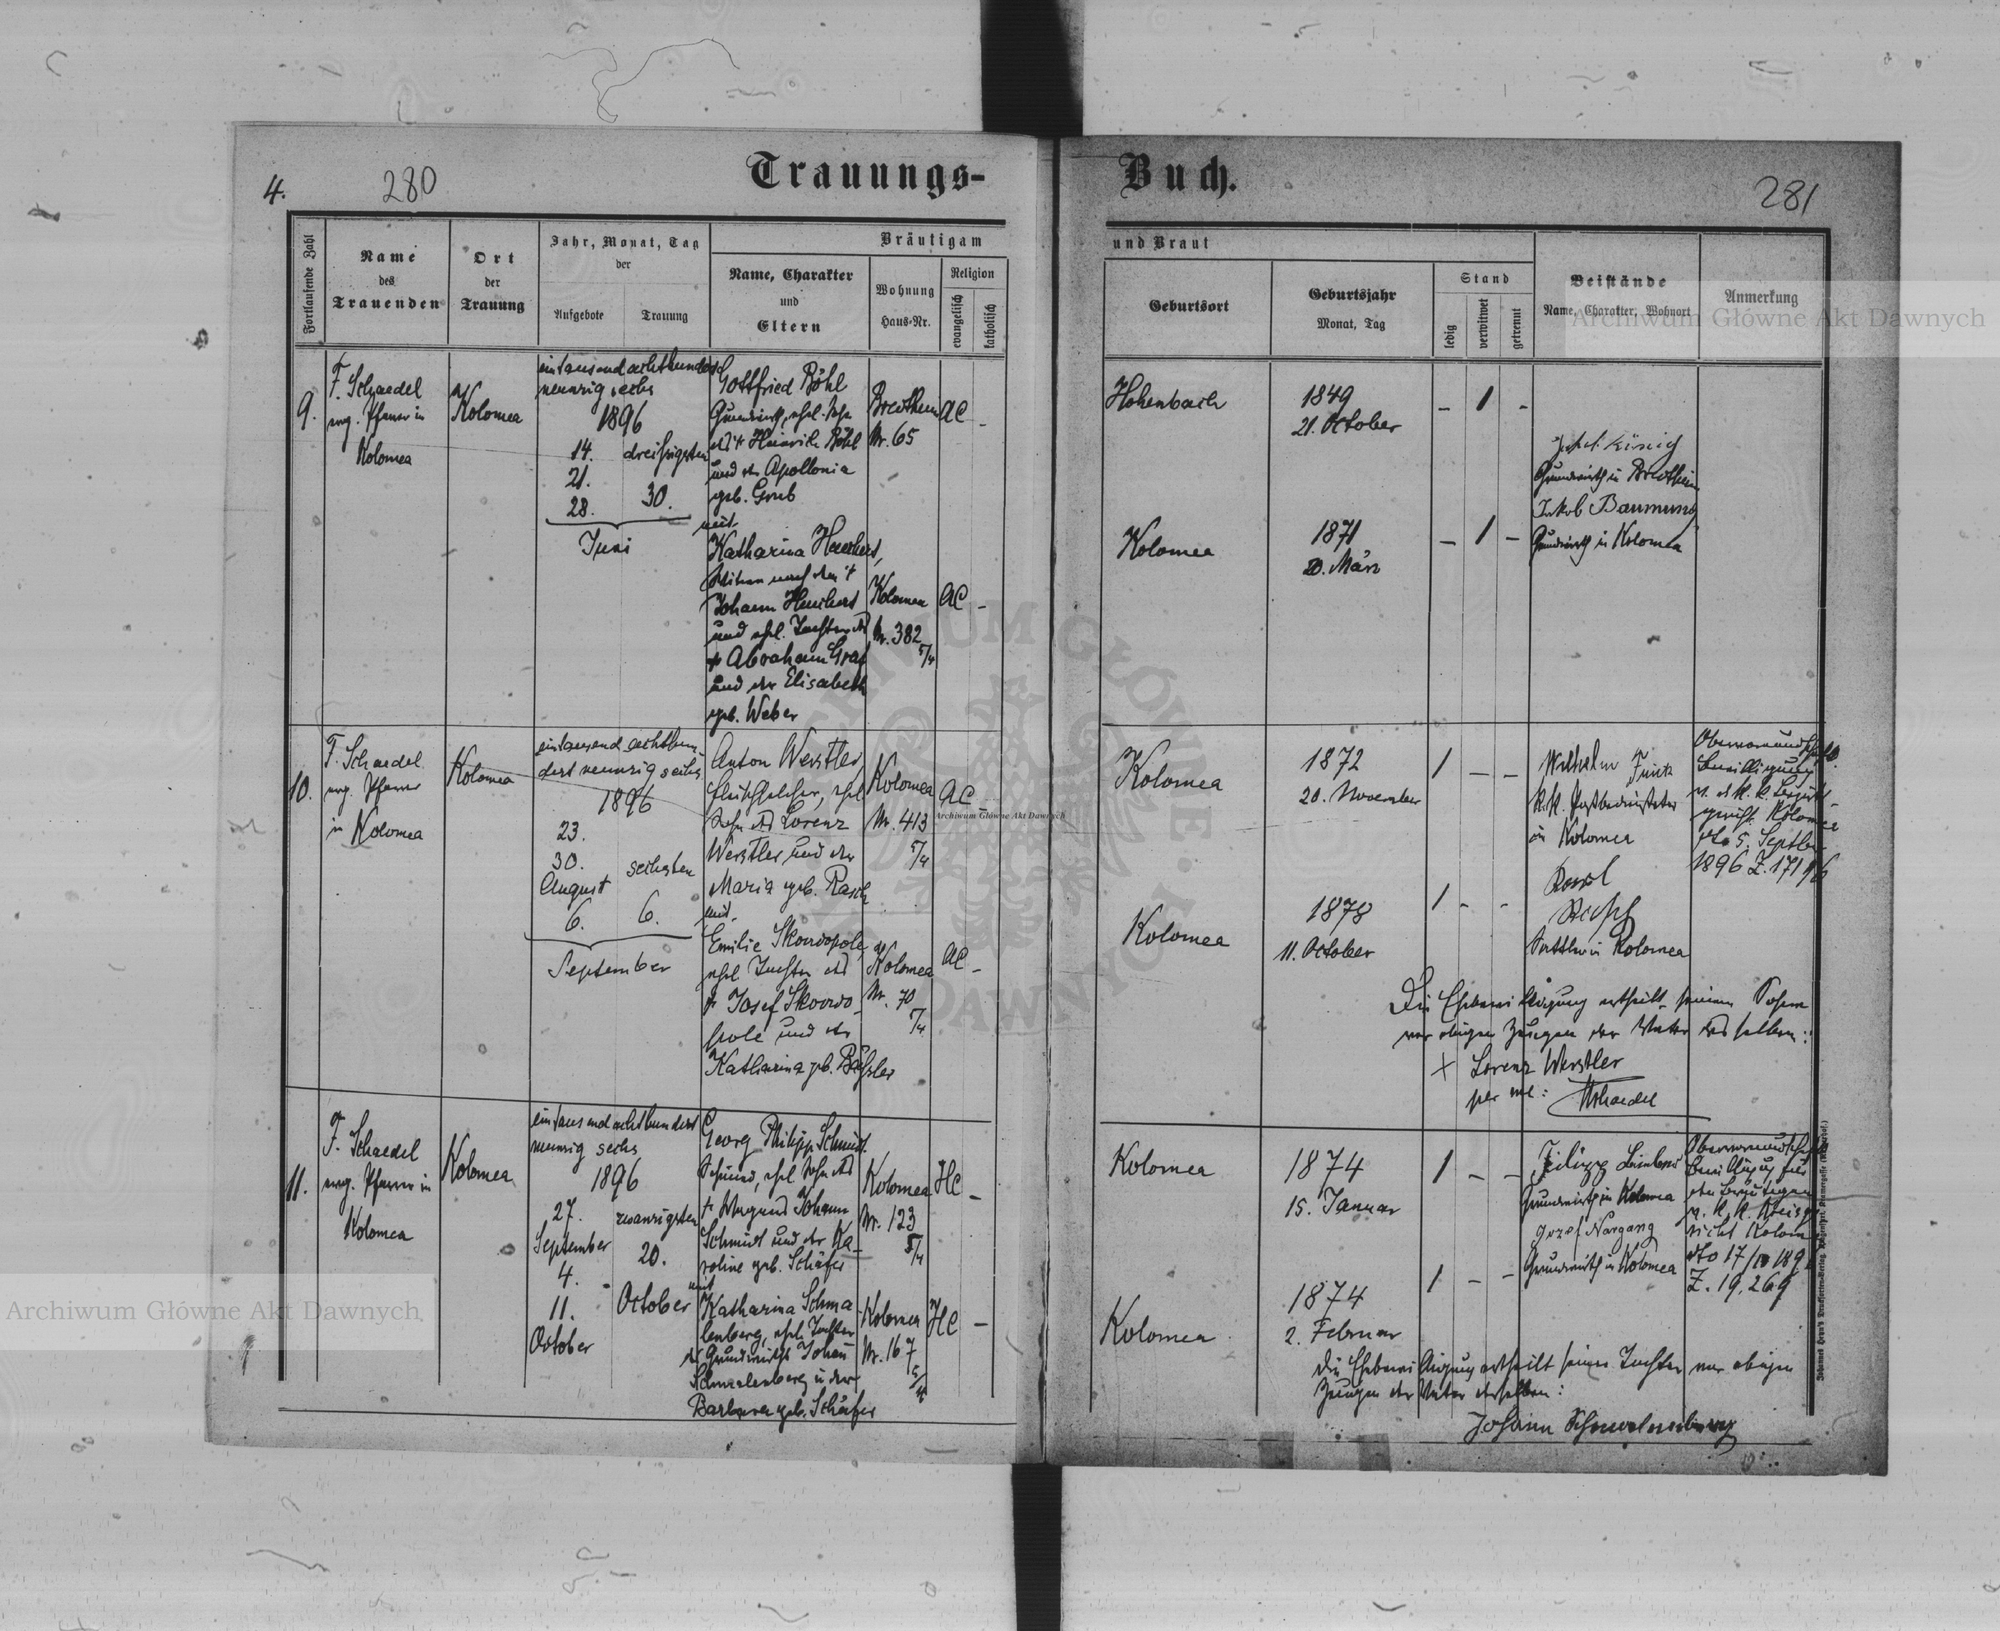 4.
280
Trauungs-
Buch.
281
Fortlaufende Zahl
Name
des
Trauenden
Ort
der
Trauung
Jahr, Monat, Tag
der
Aufgebote
Trauung
Bräutigam
Name, Charakter
und
Eltern
Wohnung
Haus-Nr.
Religion
evangelisch
katholisch
und Braut
Geburtsort
Geburtsjahr
Monat, Tag
Stand
ledig
verwitwet
getrennt
Beistände
Name, Charakter, Wohnort
Anmerkung
9.
F. Schaedel
evg. Pfarrer in
Kolomea
Kolomea
eintausendachthundert
neunzig sechs
1896
14.
21.
28.
Juni
dreißigsten
30.
Gottfried Böhl
Grundwirth, ehel. Sohn
des + Heinrich Böhl
und der Apollonia
geb. Grub
mit
Katharina
Witwe nach dem +
Johann
und ehel. Tochter des
+ Abraham Graf
und der Elisabeth
geb. Weber
Nr. 65
AC -
Kolomea
Nr. 382
5/4
AC -
Hohenbach
1849
21. October
- 1 -
Kolomea
1871
20. März
- 1 -
König
Grundwirth in
Jakob
Grundwirth in Kolomea
10.
F. Schaedel
evg. Pfarrer
in Kolomea
Kolomea
eintausend achthun-
dert neunzig sechs
1896
23.
30.
August
6.
September
sechsten
6.
Anton Werstler
Fleischselcher, ehel.
Sohn des Lorenz
Werstler und der
Maria geb. Rasch
mit
Emilie Skowopole,
ehel. Tochter des
+ Josef Skowo-
pole und der
Katharina geb. Bäßler
Kolomea
Nr. 413
5/4
AC -
Kolomea
Nr. 70
5/4
AC -
Kolomea
1872
20. November
1 - -
Kolomea
1878
11. October
1 - -
Wilhelm
k.k. Postbediensteter
in Kolomea
Sattler in Kolomea
Bewilligung
v. d. k. k. Bezirks-
gericht Kolomea
dto 5. Septbr
1896 Z. 17196
Die Ehebewilligung ertheilt seinem Sohne
vor obigen Zeugen der Vater desselben:
+ Lorenz Werstler
per me: Schaedel
11.
F. Schaedel
evg. Pfarrer in
Kolomea
Kolomea
eintausendachthundert
neunzig sechs
1896
27.
September
4.
11.
October
zwanzigsten
20.
October
Georg Philipp Schmidt
Schmied, ehel. Sohn des
+ Johann
Schmidt und der Ka-
roline geb. Schäfer
mit
Katharina Schma-
lenberg, ehel. Tochter
des Grundwirths Johann
Schmalenberg u. der
Barbara geb. Schäfer
Kolomea
Nr. 123
5/4
HC -
Kolomea
Nr. 167
5/4
HC -
Kolomea
1874
15. Januar
1 - -
Kolomea
1874
2. Februar
1 - -
Filipp
Grundwirth in Kolomea
Jozef Nargang
Grundwirth in Kolomea
Obervormundschaftl.
Bewilligung für
den Bräutigam
v. k. k. Kreisge-
richt Kolomea
dto 17/10 1896
Z. 19,269
Die Ehebewilligung ertheilt seiner Tochter vor obigen
Zeugen der Vater derselben:
Johann Schmalenberg
Archiwum Główne Akt Dawnych
Archiwum Główne Akt Dawnych
Archiwum Główne Akt Dawnych
ARCHIWUM GŁÓWNE AKT DAWNYCH